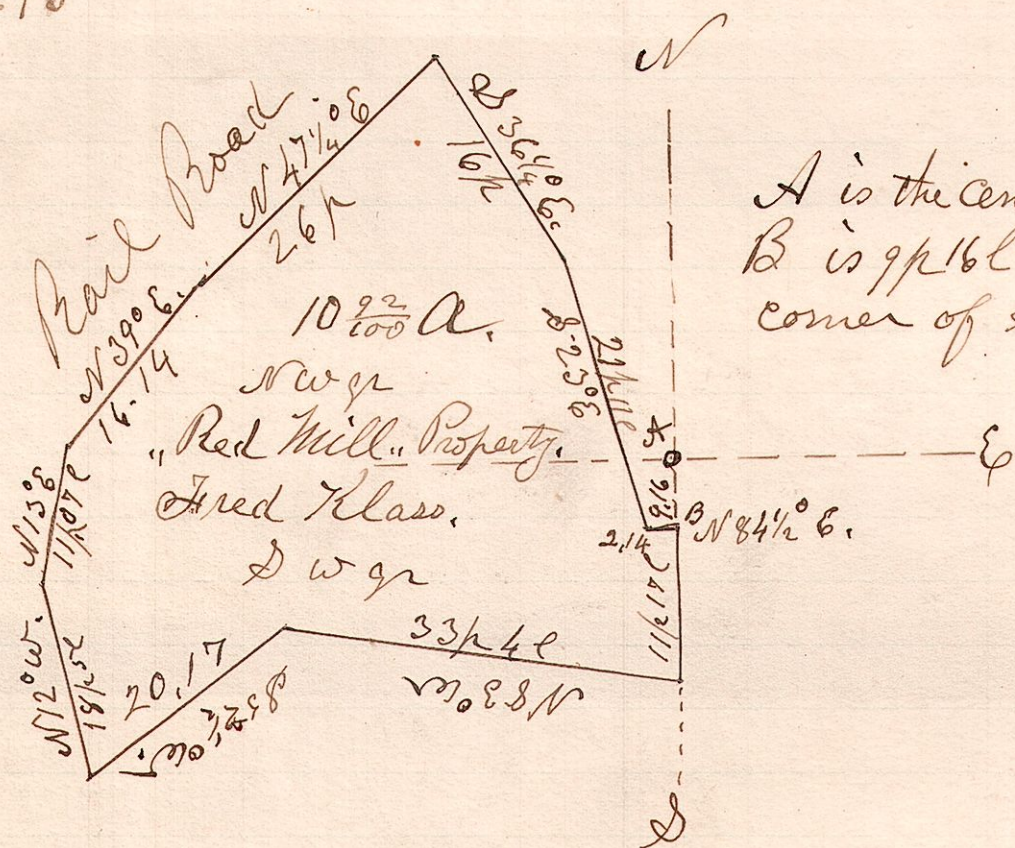 N
Rail Road
N 47 1/4° E
26 p
S 36 1/4° E.
16 p
A is the cen
B is 9 p 16 l
corner of s
N 39° E.
16.14
10 92/100 A.
S 23° E
21 p 11 l
N W qr
"Red Mill" Property.
Fred Klass.
S W qr
A
E
9.16
B
N 84 1/2° E.
2.14
11 p 17 l
N 13° E
11 p 07 l
N 12° W.
18 p 5 l
20.17
33 p 4 l
N 83° W
S